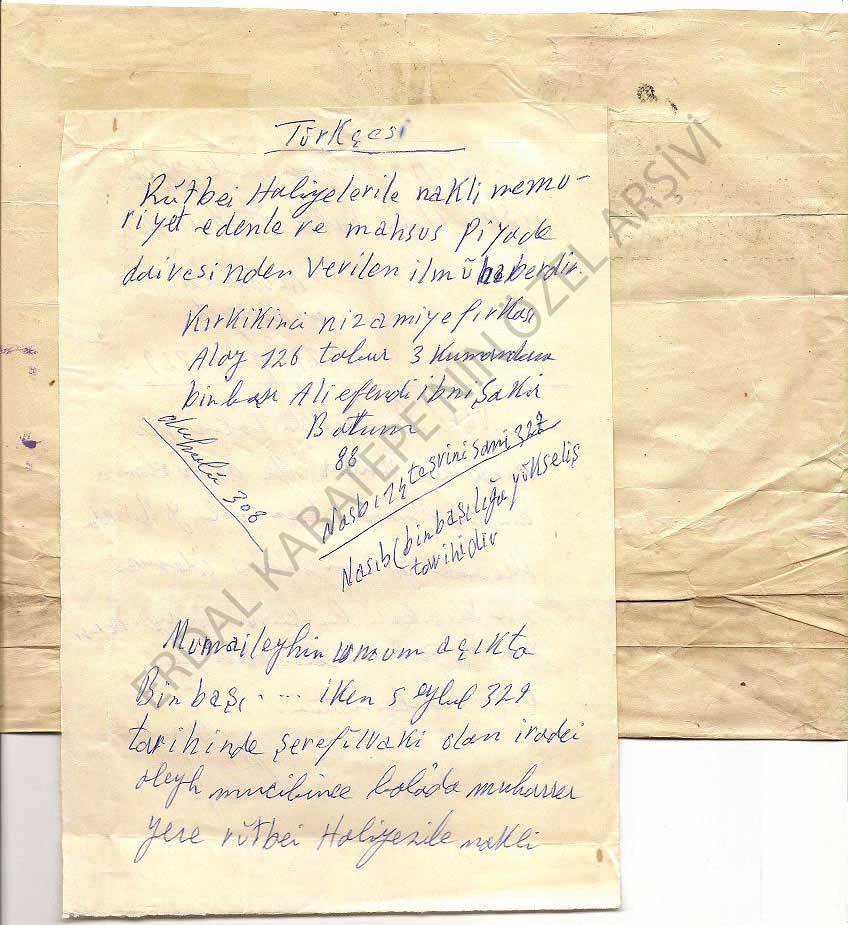 Türkçesi
Rütbei Haliyelerile nakli memu-
riyet edenle ve mahsus Piyade
dairesinden Verilen ilmühaberdir.
Kırkikinci nizamiye fırkası
Alay 126 tabur 3 Kumandanı
binbaşı Ali efendi ibni Şakir
Batum
88
duhulü 308
Nasbı 14 teşrini sani 327
Nasıb (binbaşılığa yükseliş
tarihidir
Mumaileyhin umum açıkta
Binbaşı .... iken 5 eylul 329
tarihinde şerefülvaki olan iradei
aleyh mucibince balâda muharrer
yere rütbei Haliyesile nakli
ERDAL KABATEPE'NİN ÖZEL ARŞİVİ